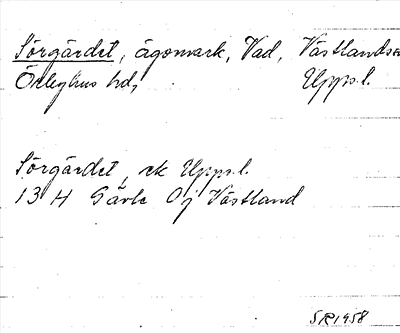 Sörgärdet, ägomark, Vad, Västlands
Örbyhus hd, Upps.l.
Sörgärdet, ek Upps.l.
13 H Gävle Öj Västland
SR 1958